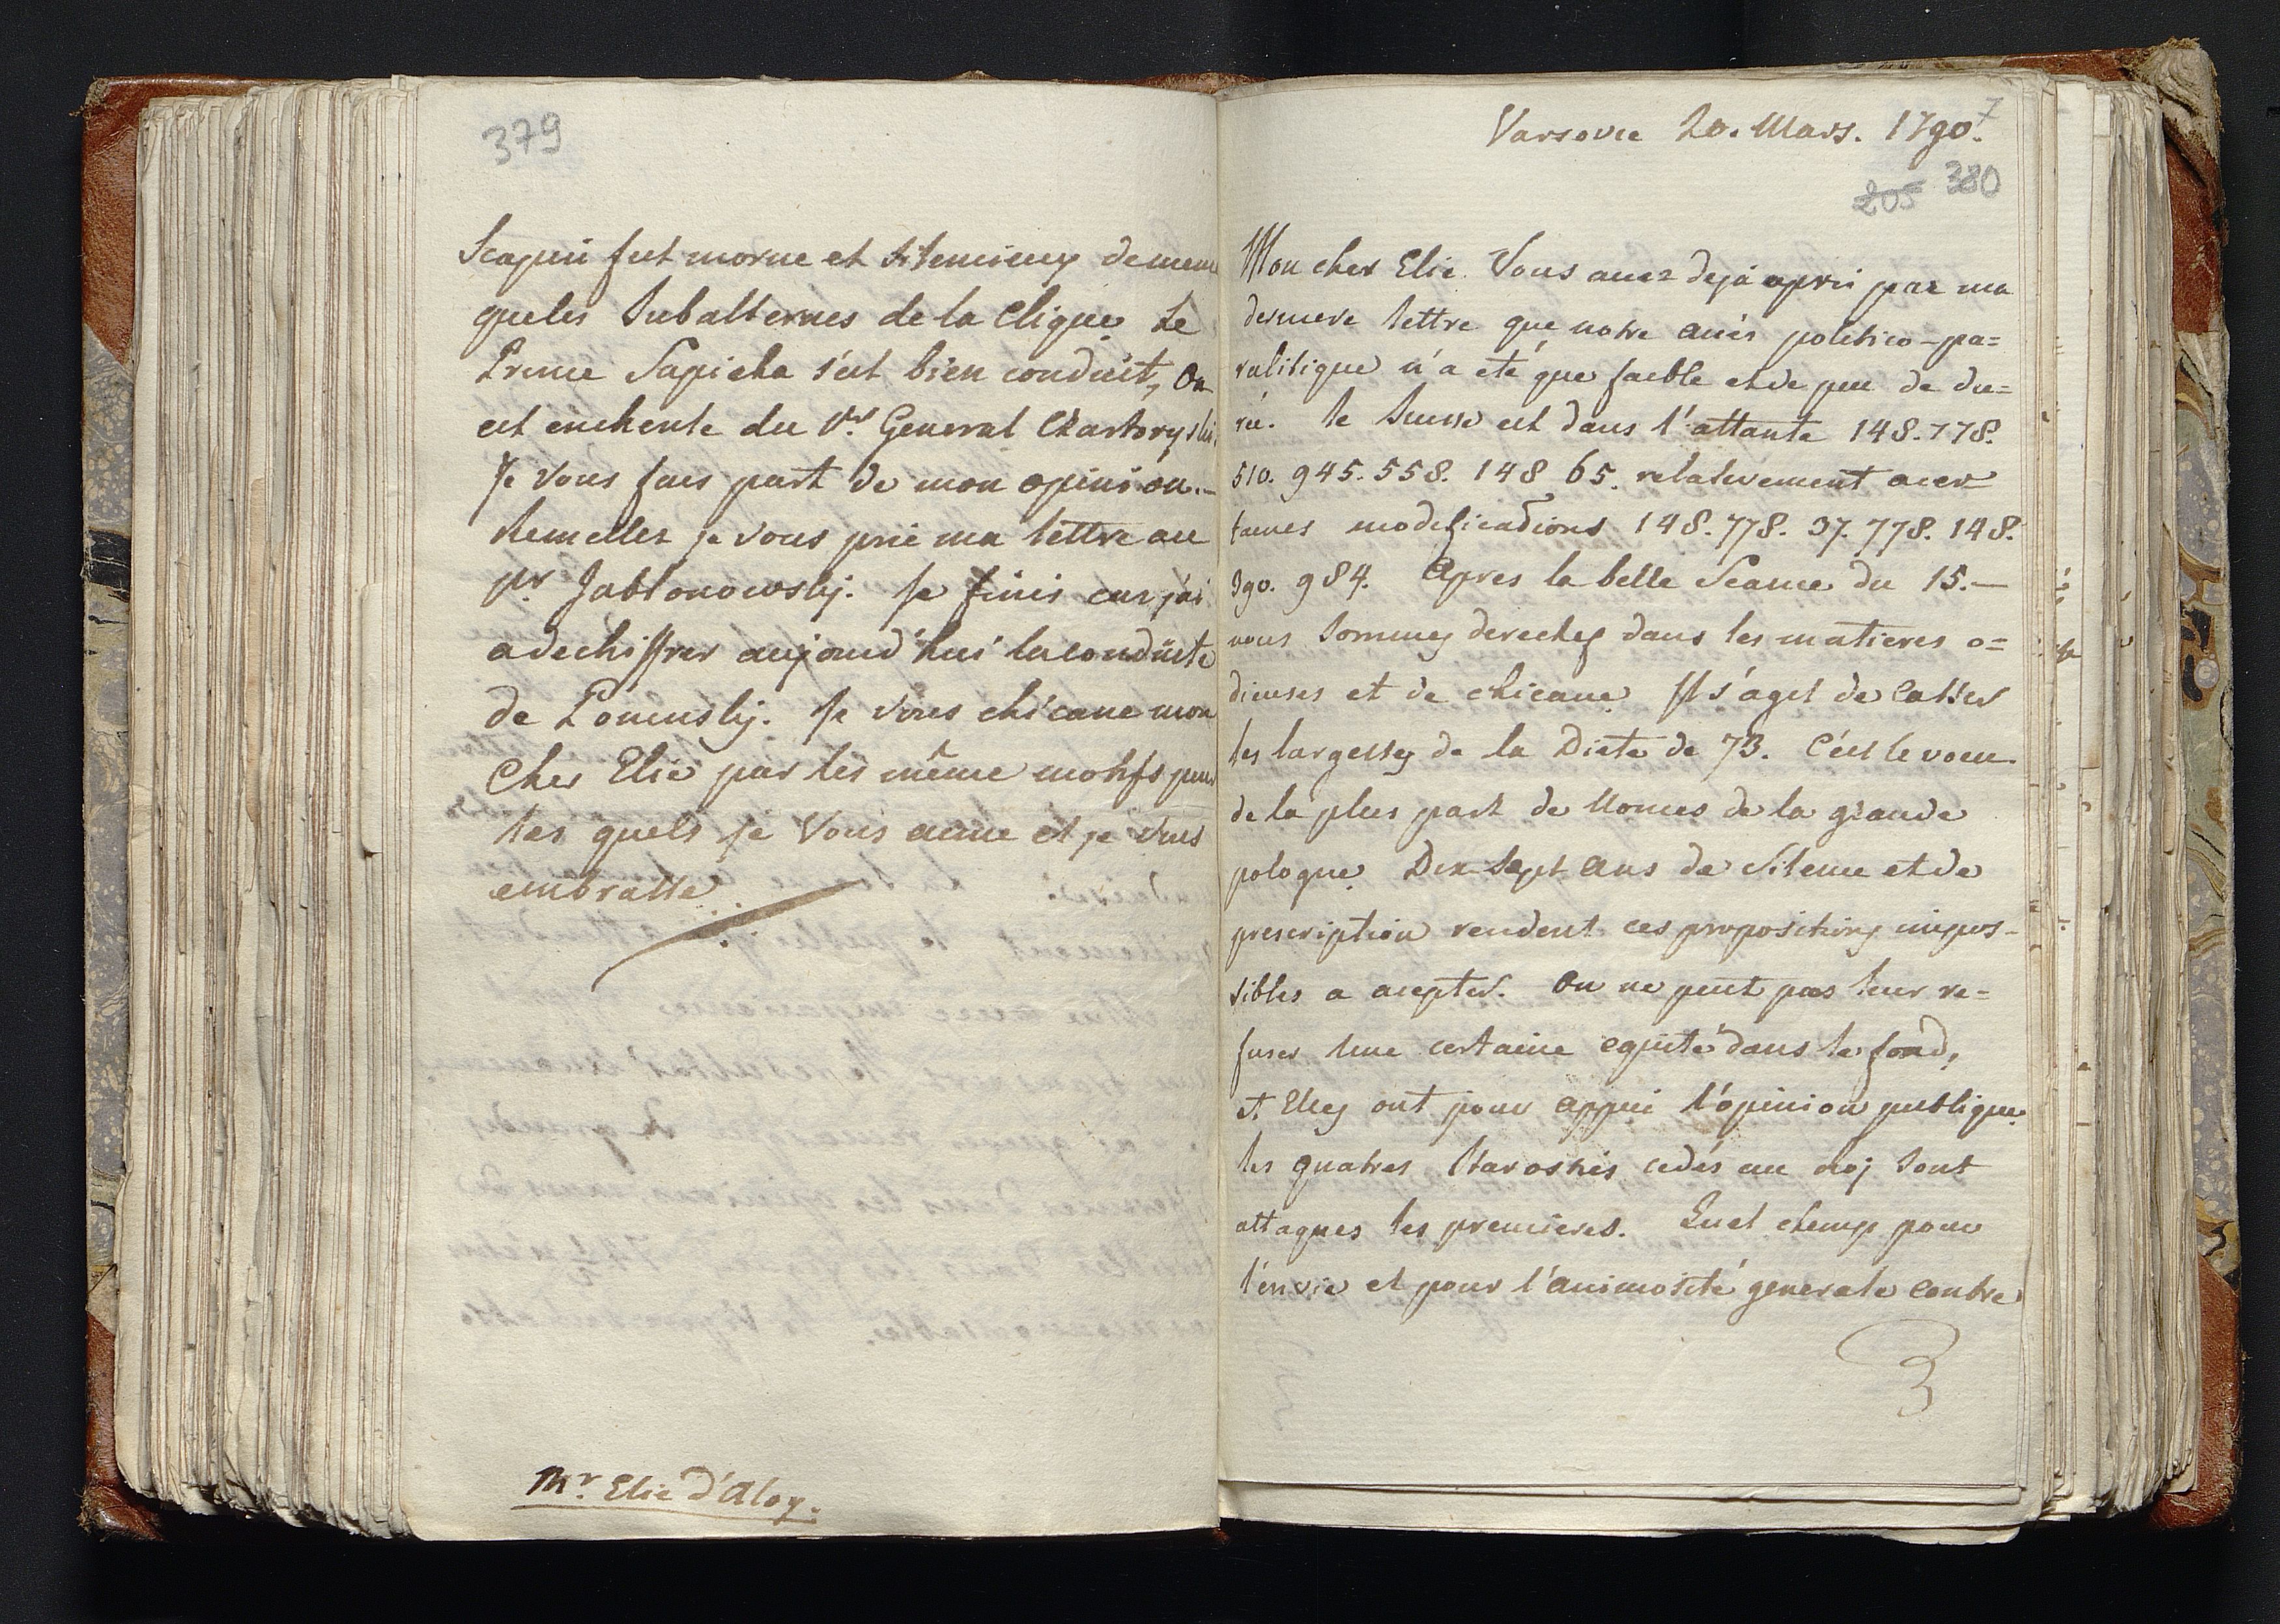 379
Scapin fut morne et silencieux de meme
que les Subalternes de la Clique. Le
Prince Sapieha s'est bien conduit, On
est enchenté du Pr General Czartoryski,
Je vous fais part de mon opinion.—
Remettez je vous prie ma lettre au
pr Jablonowskj. Je finis car j'ai
a dechiffrer aujourd'hui la conduite
de Poninskj. Je vous chicane mon
Cher Elie par les même motifs pour
les quels je Vous aime et je vous
embrasse.
Mr Elie d'Aloy.
Varsovie 20. Mars. 1790.
7
205 380
Mon cher Elie. Vous avez deja apris par ma
derniere lettre que notre accès politico-pa=
ralitique n'a eté que faible et de peu de du=
rée. le Suisse est dans l'attante 148. 778.
510. 945. 558. 148 65. relativement a cer
taines modifications 148. 778. 37. 778. 148.
390. 984. Apres la belle Seance du 15.—
nous sommes derechef dans les matieres o=
dieuses et de chicane. Il s'agit de casser
les largesses de la Diete de 73. C'est le voeu
de la plus part de Nonces de la grande
pologne. Dix-sept ans de silence et de
prescription rendent ces propositions impos-
sibles a accepter. On ne peut pas leur re=
fuser une certaine equité dans le fond,
et Elles ont pour appui l'opinion publique.
les quatres Starosties cedés au roj sont
attaques les premieres. Quel champ pour
l'envie et pour l'animosité generale contre